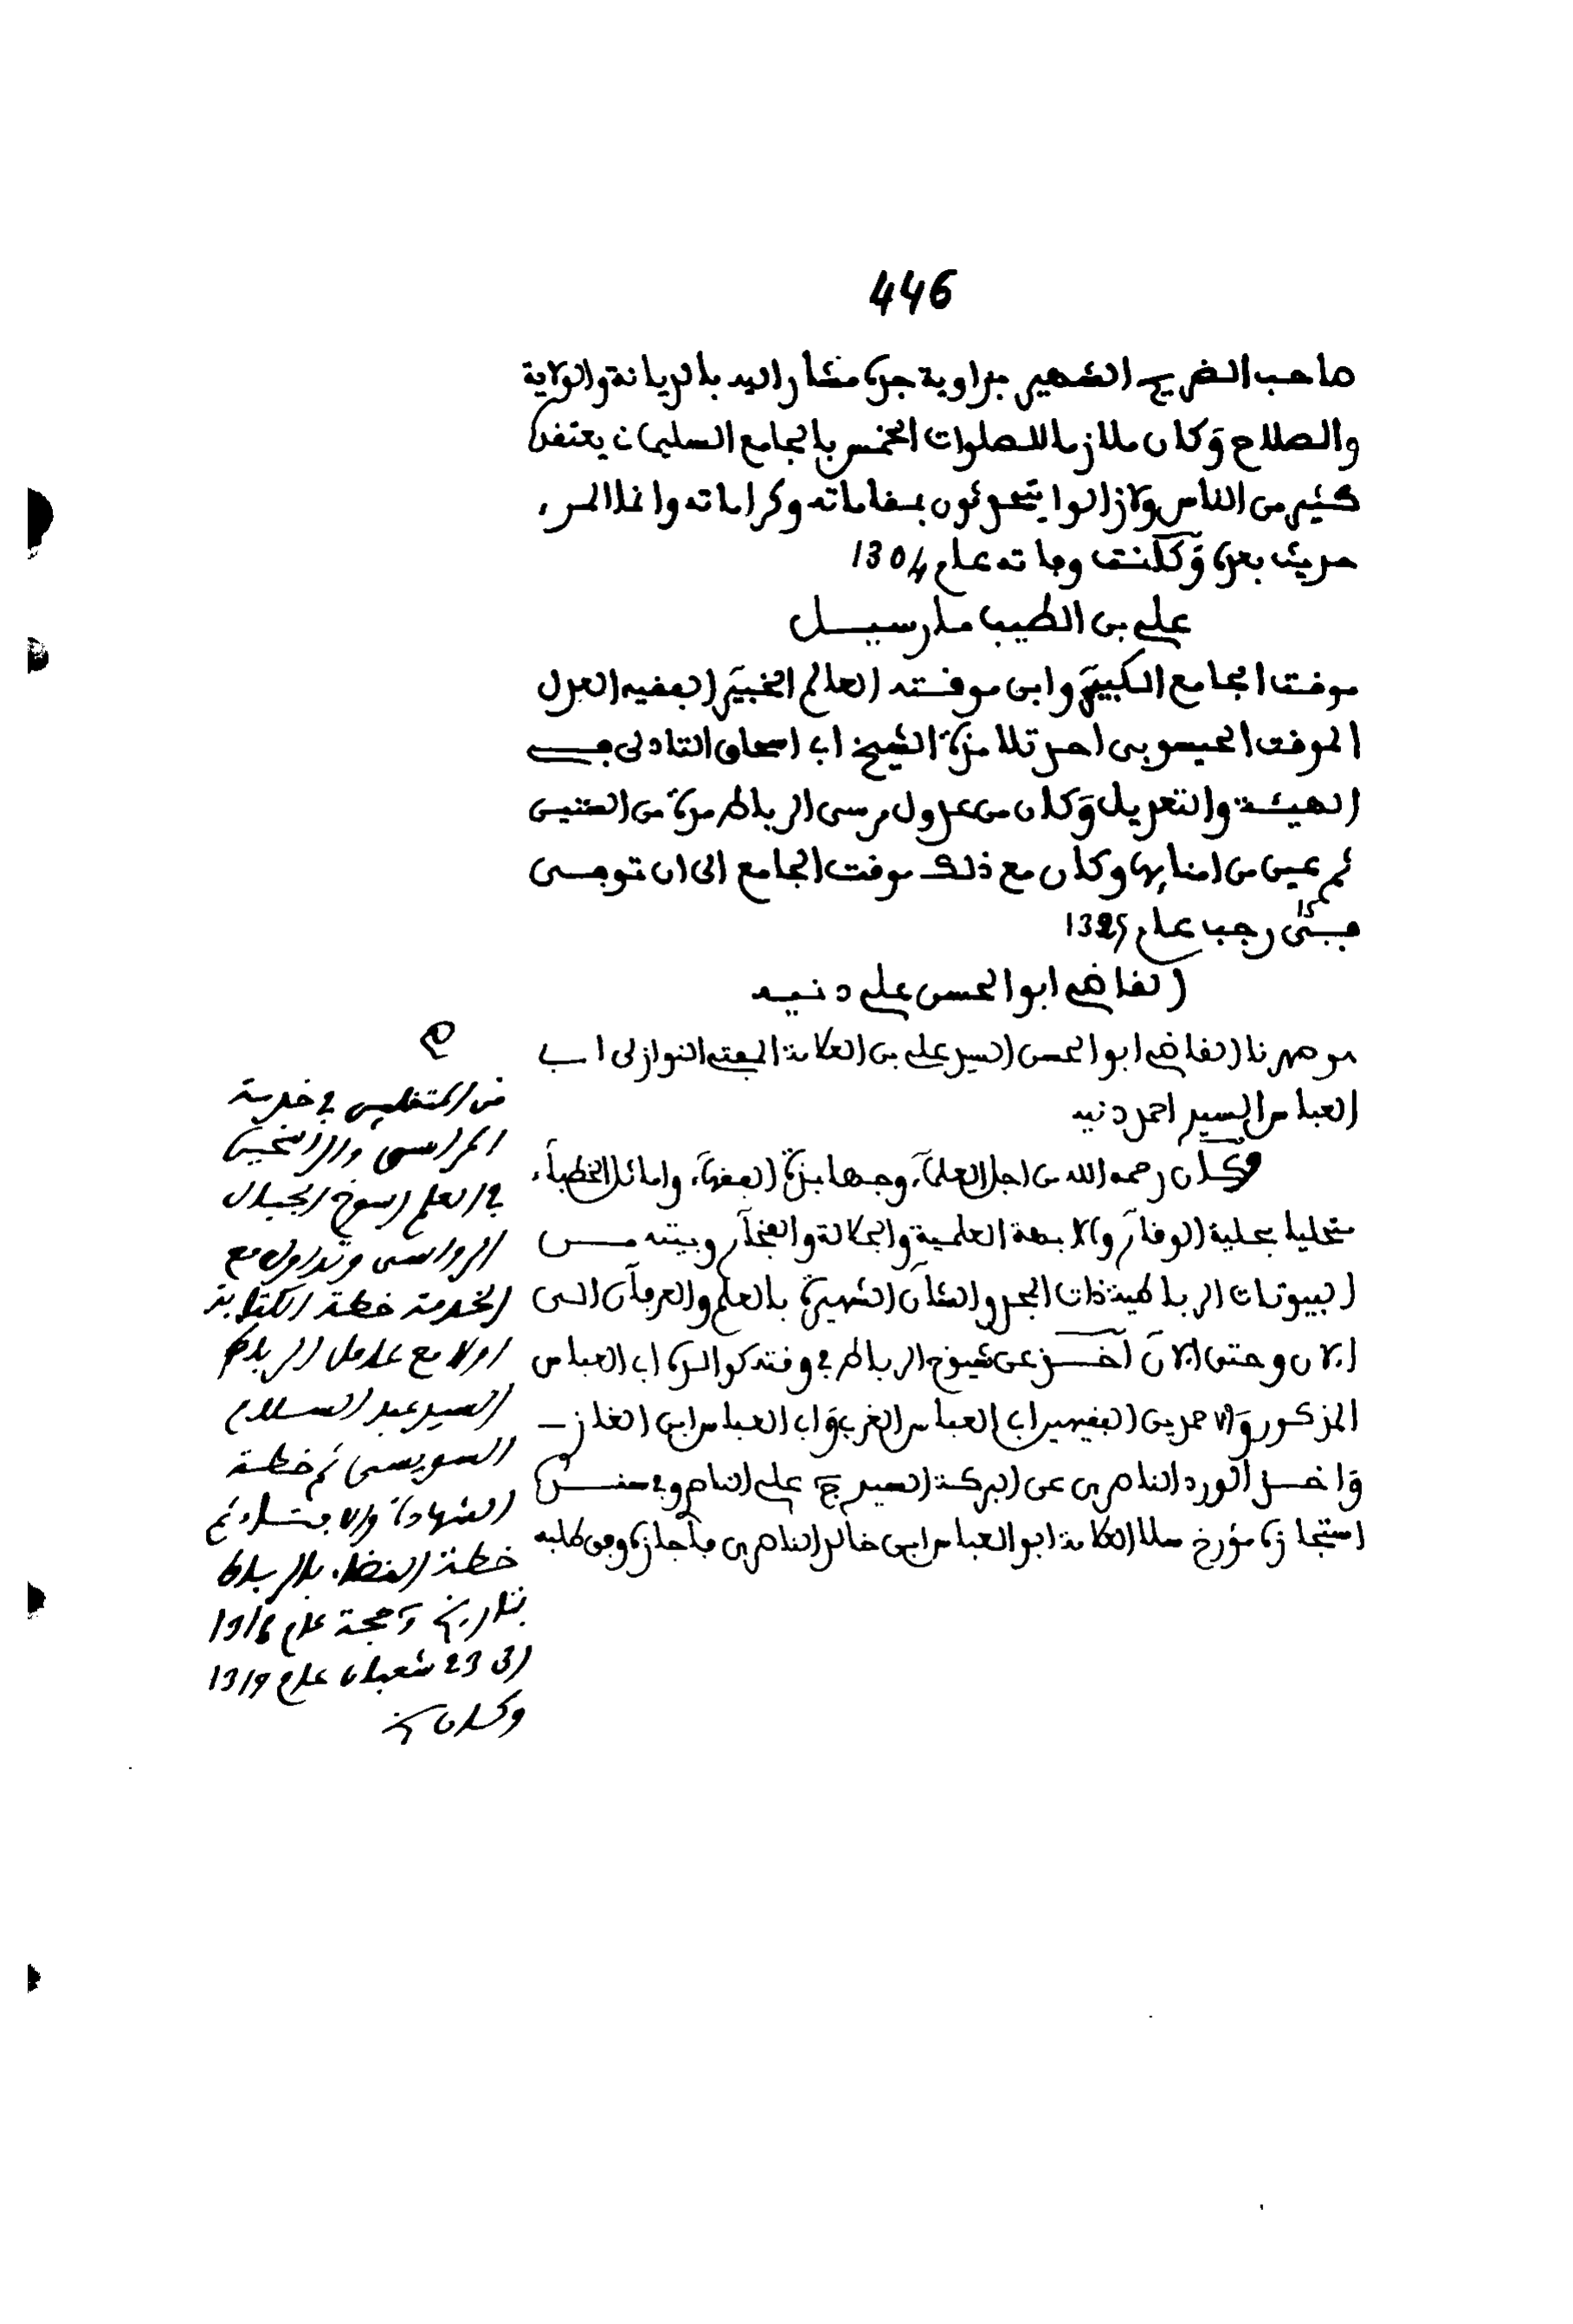 446
صاحب الضريح الشهير بزاوية جده مشار اليه بالديانة والولاية
والصلاح وكان ملازما للصلوات الخمس بالجامع السليماني يعتقده
كثير من الناس ولازالوا يتحدثون بمقاماته وكراماته وانما المرء
حديث بعده وكانت وفاته عام 1304
علي بن الطيب مارسيل
موقت الجامع الكبير وابن موقته العالم الخبير الفقيه العدل
الموقت الحيسوبي احد تلامذة الشيخ ابي اسحاق التادلي في
الهيئة والتعديل وكان من عدول مرسى الرباط مدة من السنين
ثم عين من امنايها وكان مع ذلك موقت الجامع الى ان توفى
في 15 رجب عام 1325
القاضي ابو الحسن علي دنيه
هو صهرنا القاضي ابو الحسن السيد علي بن العلامة المفتي النوازلي ابي
العباس السيد احمد دنيه
وكان رحمه الله من اجل العلماء، وجهابذة الفقهاء، واماثل الخطباء،
متحليا بحلية الوقار والابهة العلمية والجلالة والفخار وبيته من
البيوتات الرباطية ذات المجد والشأن الشهيرة بالعلم والعرفان الى
الان وحتى الان اخذ عن شيوخ الرباط في وقته كوالده ابي العباس
المذكور والاحمدين الفقيهين ابي العباس الغربي وابي العباس ابن الغازي
واخذ الورد الناصري عن البركة السيد الحاج علي الناصري في سفره
استجازه مؤرخ سلا العلامة ابو العباس ابن خالد الناصري فأجازه ومن طلبه
من المتقلبين في خدمة
المراسي والراسخين
في العلم رسوخ الجبال
الرواسي وتداول مع
الخدمة خطة الكتابة
اولا مع عامل الرباط
السيد عبد السلام
السويسي ثم خطة
الشهادة والافتاء ثم
خطة القضاء بالرباط
بتاريخ حجة عام 1316
الى 23 شعبان عام 1319
وكان